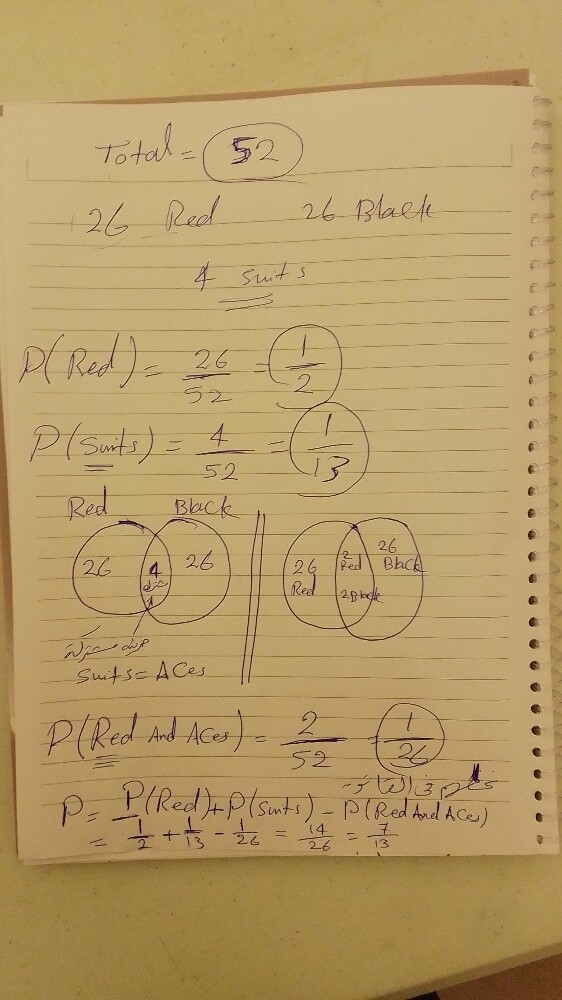 Total = 52
26 Red 26 Black
4 suits
P(Red) = 26/52 = 1/2
P(Suits) = 4/52 = 1/13
Red Black
26 4 26
26 Red 2 Red 2 Black 26 Black
Suits = ACes
P(Red And ACes) = 2/52 = 1/26
P = P(Red) + P(Suits) - P(Red And ACes)
= 1/2 + 1/13 - 1/26 = 14/26 = 7/13